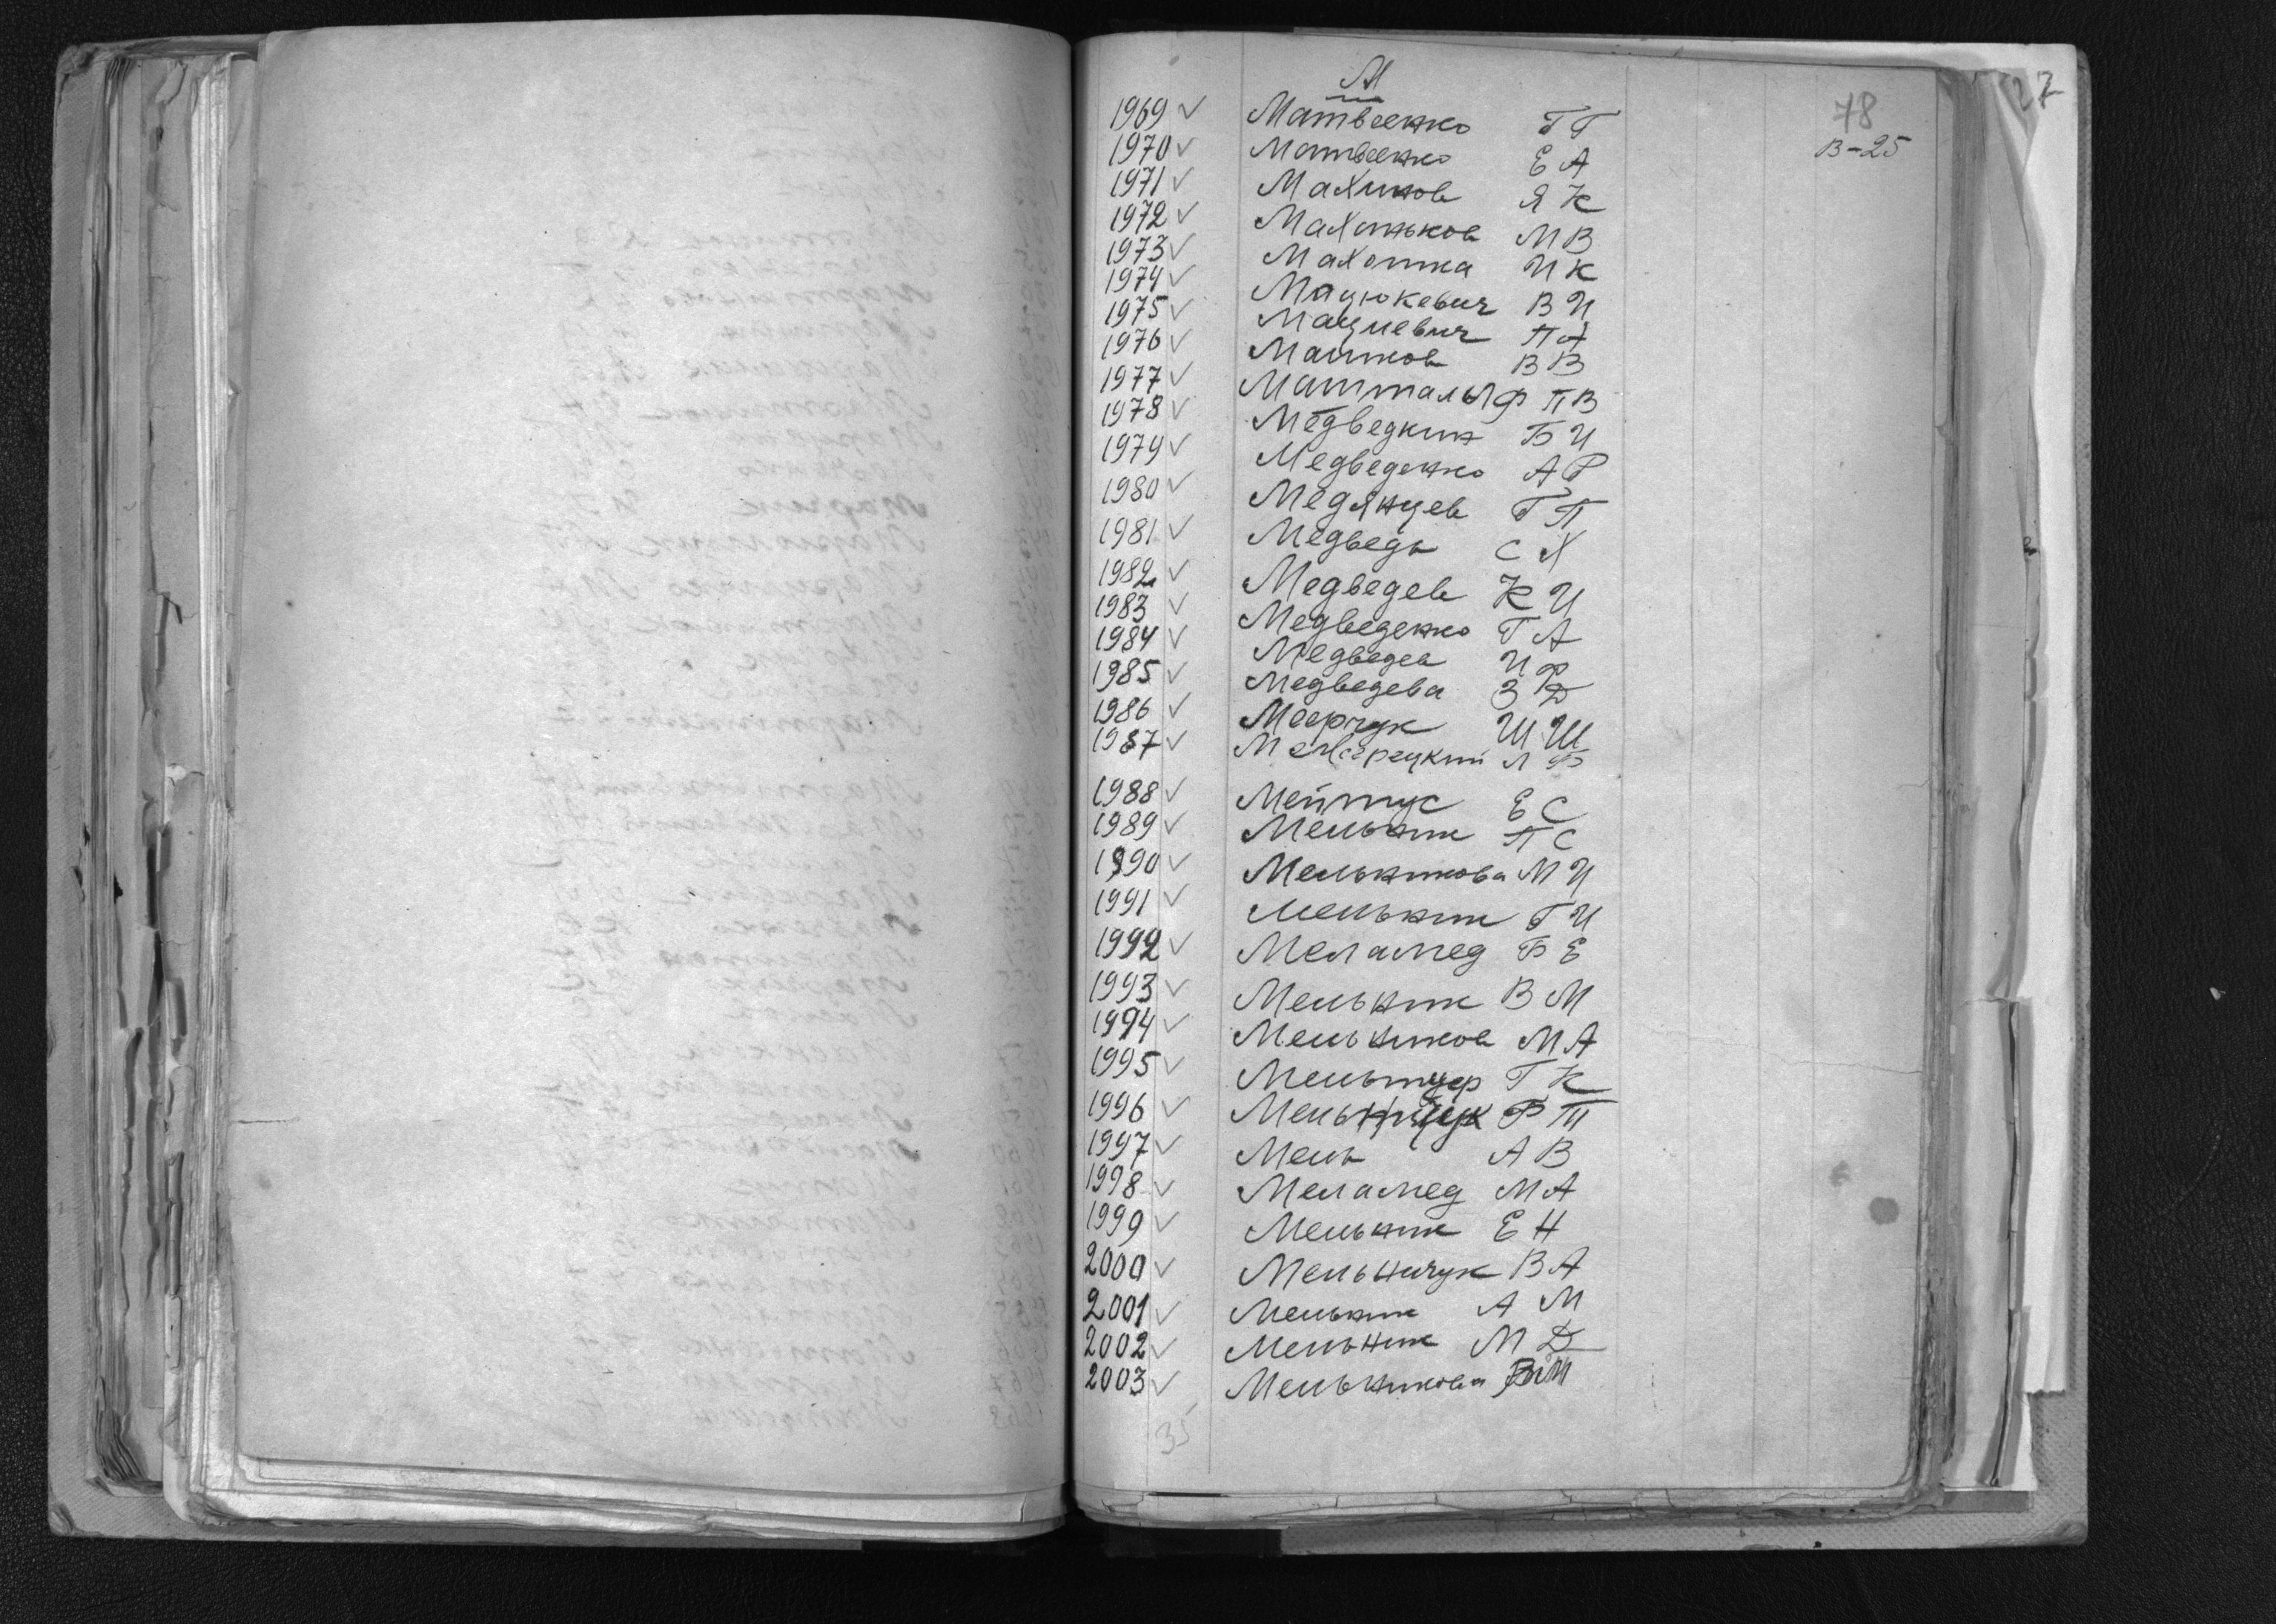 М
27
78
В-25
1969 ✓ Матвеенко Г Г
1970 ✓ Матвеенко Е А
1971 ✓ Махинов Я К
1972 ✓ Махоньков М В
1973 ✓ Махотка И К
1974 ✓ Мацюкевич В И
1975 ✓ Мацкевич П А
1976 ✓ Машков В В
1977 ✓ П В
1978 ✓ Медведкин Б И
1979 ✓ Медведенко А Р
1980 ✓ Медянцев Г П
1981 ✓ Медведь С Х
1982 ✓ Медведев К И
1983 ✓ Медведенко Г А
1984 ✓ Медведев И Ф
1985 ✓ Медведева З Д
1986 ✓ Меерчук Ш Ш
1987 ✓ Л Ф
1988 ✓ Мейтус Е С
1989 ✓ Мельник П С
1990 ✓ Мельникова М И
1991 ✓ Мельник Г И
1992 ✓ Меламед Б Е
1993 ✓ Мельник В М
1994 ✓ Мельников М А
1995 ✓ Мельтцер Г К
1996 ✓ Мельничук Ф Т
1997 ✓ Мель А В
1998 ✓ Меламед М А
1999 ✓ Мельник Е Н
2000 ✓ Мельничук В А
2001 ✓ Мельник А М
2002 ✓ Мельник М Д
2003 ✓ Мельникова В М
35